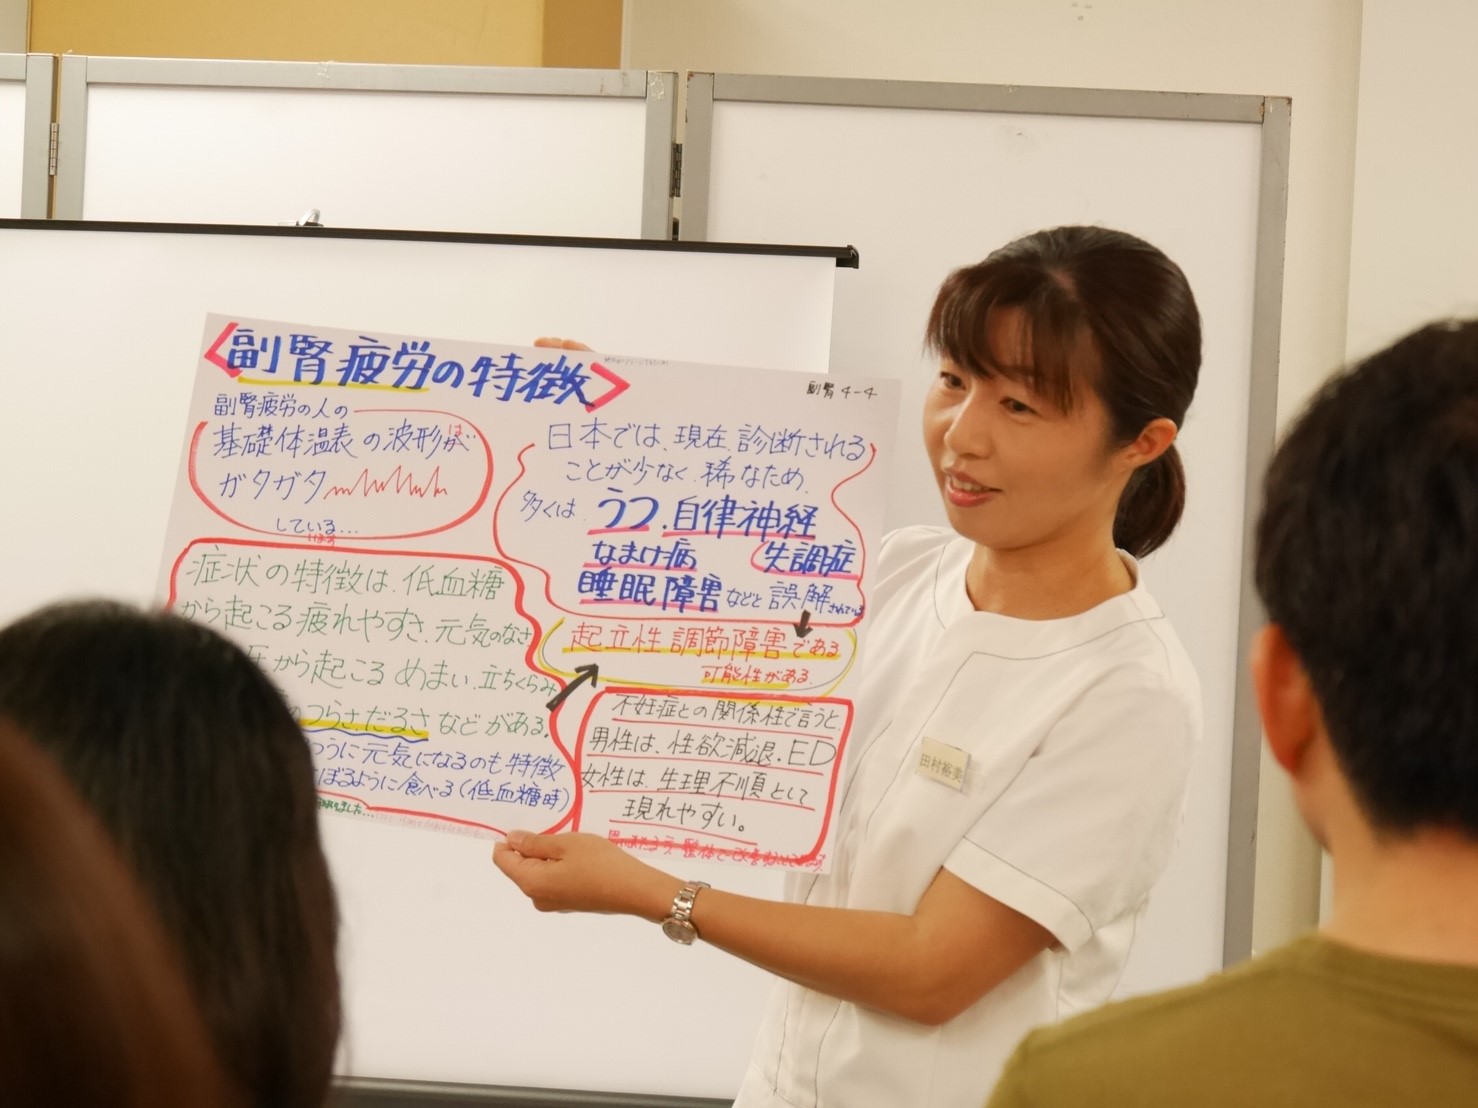 <副腎疲労の特徴>
副腎疲労の人の
基礎体温表の波形が
は
ガタガタ
している…
症状の特徴は、低血糖
から起こる疲れやすさ、元気のなさ
圧から起こるめまい、立ちくらみ
のつらさ、だるさなどがある。
うに元気になるのも特徴
ぼるように食べる(低血糖時)
副腎4-4
日本では、現在、診断される
ことが少なく、稀なため、
多くは、うつ、自律神経
なまけ病 失調症
睡眠障害などと誤解されている
起立性調節障害である
可能性がある。
不妊症との関係性で言うと、
男性は、性欲減退、ED
女性は、生理不順として
現れやすい。
田村裕美